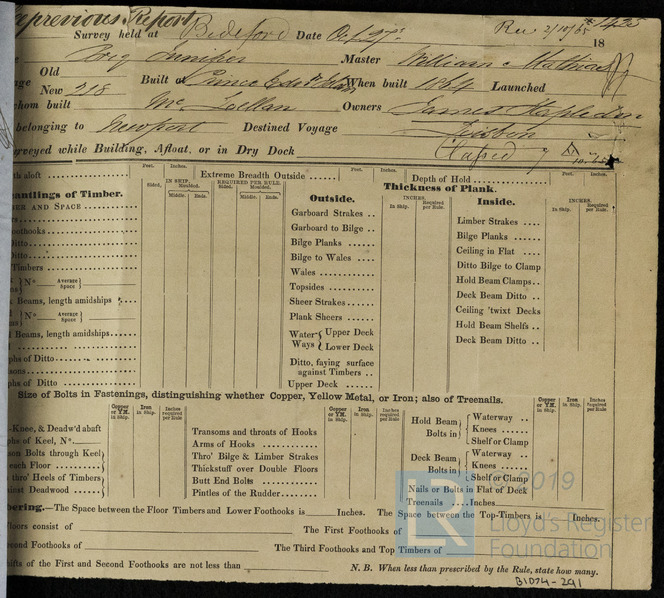 previous Report
Survey held at Bideford Date Oct 27th Rec 2/10/65 18
Brig Juniper Master William Mathias
Old
New 218 Built at Prince Edwd When built 1864 Launched
whom built Mc Lellan Owners James
belonging to Newport Destined Voyage Lisbon
rveyed while Building, Afloat, or in Dry Dock
th aloft Feet. Inches. Extreme Breadth Outside Feet. Inches. Depth of Hold Feet. Inches.
antlings of Timber.
Sided. IN SHIP. Moulded. Middle. Ends. REQUIRED PER RULE. Sided. Moulded. Middle. Ends.
BER AND SPACE
ors
oothooks
Ditto
Ditto
Timbers
Nº Average Space
k Beams, length amidships
Nº Average Space
Beams, length amidships
phs of Ditto
sons
phs of Ditto
Thickness of Plank.
Outside.
INCHES.
In Ship. Required per Rule.
Garboard Strakes
Garboard to Bilge
Bilge Planks
Bilge to Wales
Wales
Topsides
Sheer Strakes
Plank Sheers
Water Ways { Upper Deck
Lower Deck
Ditto, faying surface against Timbers
Upper Deck
Inside.
INCHES.
In Ship. Required per Rule.
Limber Strakes
Bilge Planks
Ceiling in Flat
Ditto Bilge to Clamp
Hold Beam Clamps
Deck Beam Ditto
Ceiling 'twixt Decks
Hold Beam Shelfs
Deck Beam Ditto
Size of Bolts in Fastenings, distinguishing whether Copper, Yellow Metal, or Iron; also of Treenails.
Copper or Y.M. in Ship. Iron in Ship. Inches required per Rule
-Knee, & Deadw'd abaft
phs of Keel, Nº.
son Bolts through Keel
each Floor
thro' Heels of Timbers
ainst Deadwood
Copper or Y.M. in Ship. Iron in Ship. Inches required per Rule
Transoms and throats of Hooks
Arms of Hooks
Thro' Bilge & Limber Strakes
Thickstuff over Double Floors
Butt End Bolts
Pintles of the Rudder
Copper or Y.M. in Ship. Iron in Ship. Inches required per Rule
Hold Beam Bolts in { Waterway
Knees
Shelf or Clamp
Deck Beam Bolts in { Waterway
Knees
Shelf or Clamp
Nails or Bolts in Flat of Deck
Treenails Inches
bering.—The Space between the Floor Timbers and Lower Foothooks is Inches. The Space between the Top-Timbers is Inches.
loors consist of The First Foothooks of
cond Foothooks of The Third Foothooks and Top Timbers of
hifts of the First and Second Foothooks are not less than N. B. When less than prescribed by the Rule, state how many.
© 2019
LR
Lloyd's Register
Foundation
B1074-291